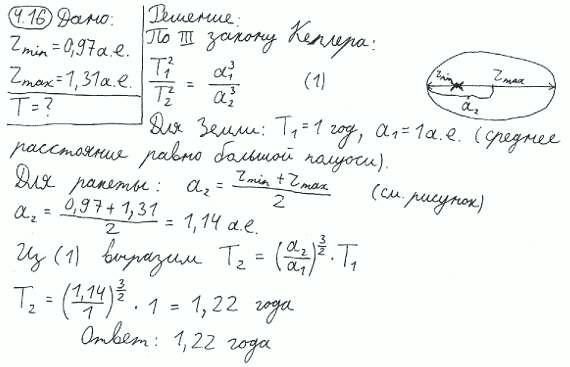 4.16 Дано:
r min = 0,97 а.е.
r max = 1,31 а.е.
T = ?
Решение:
По III закону Кеплера:
T₁²/T₂² = a₁³/a₂³ (1)
r min r max
a₂
Для Земли: T₁ = 1 год, a₁ = 1 а.е. (среднее
расстояние равно большой полуоси).
Для ракеты: a₂ = (r min + r max)/2 (см. рисунок)
a₂ = (0,97 + 1,31)/2 = 1,14 а.е.
Из (1) выразим T₂ = (a₂/a₁)^(3/2) · T₁
T₂ = (1,14/1)^(3/2) · 1 = 1,22 года
Ответ: 1,22 года